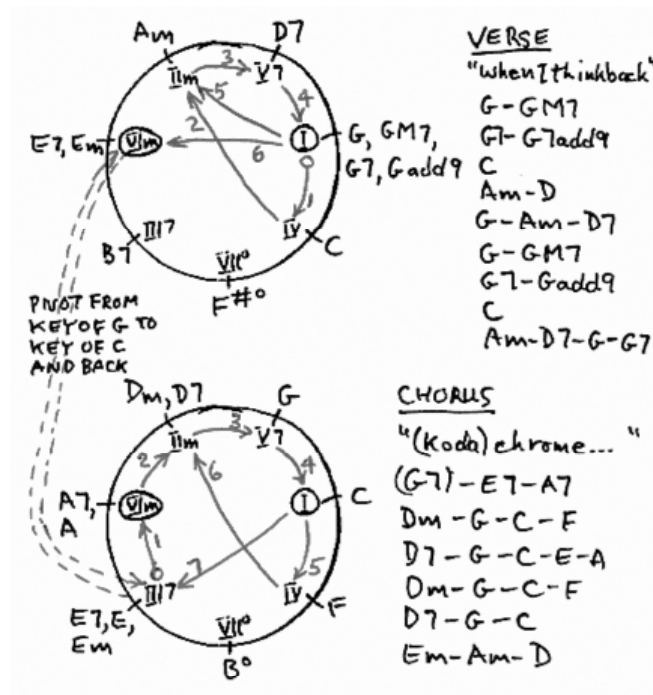 Am
D7
IIm
3
V7
5
4
2
E7, Em
VIm
6
I
0
G, GM7,
G7, Gadd9
1
B7
III7
IV
C
VII°
F#°
PIVOT FROM
KEY OF G TO
KEY OF C
AND BACK
Dm, D7
G
IIm
3
V7
2
6
4
A7,
A
VIm
I
C
1
0
7
5
III7
IV
F
E7, E,
Em
VII°
B°
VERSE
"When I think back"
G-GM7
G7-G7add9
C
Am-D
G-Am-D7
G-GM7
G7-Gadd9
C
Am-D7-G-G7
CHORUS
"(Koda)chrome... "
(G7)-E7-A7
Dm-G-C-F
D7-G-C-E-A
Dm-G-C-F
D7-G-C
Em-Am-D